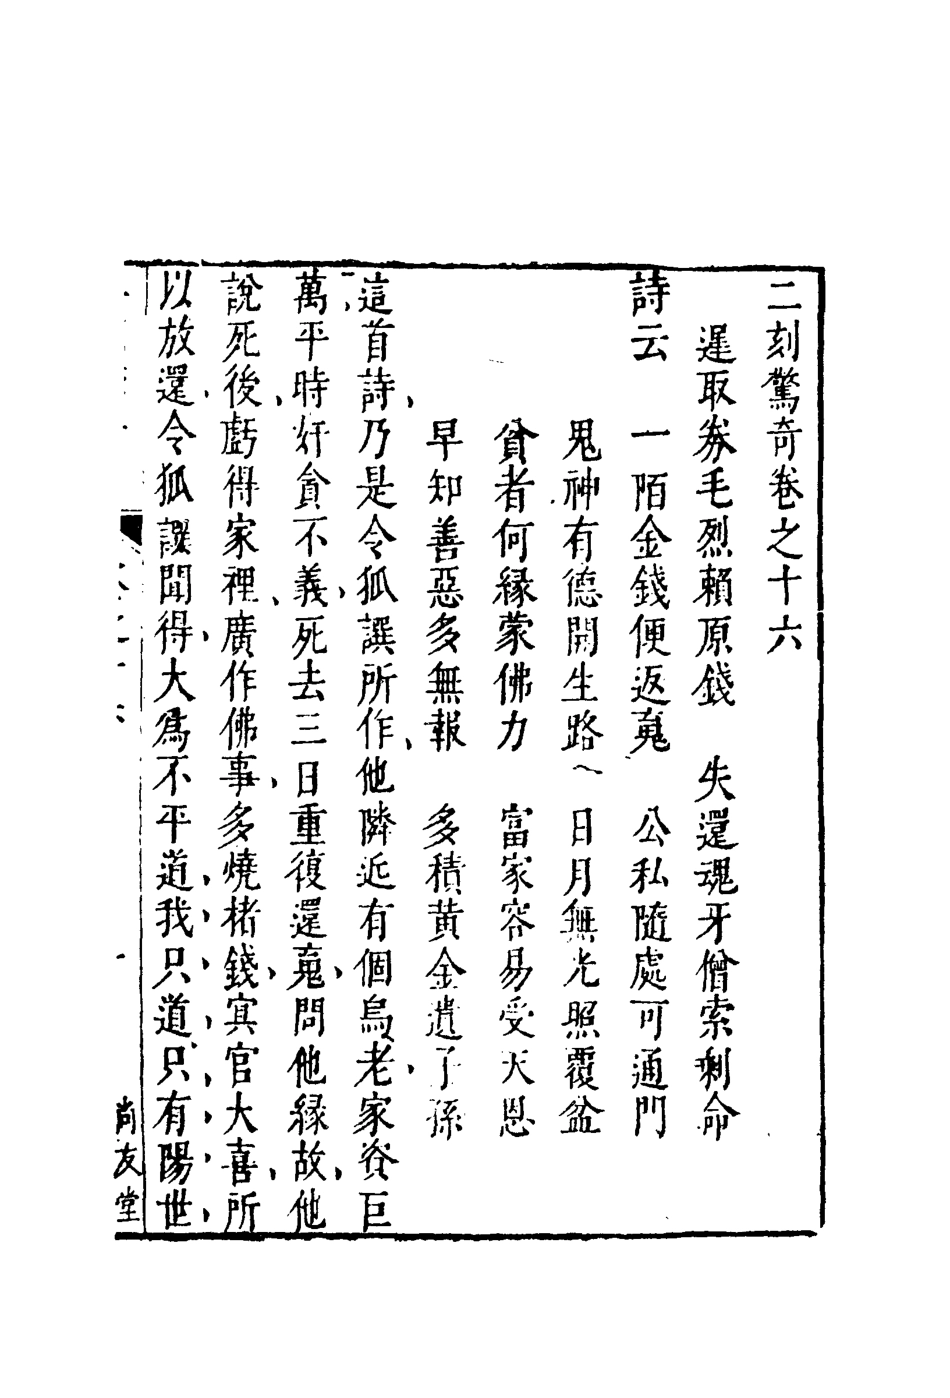 二刻驚奇卷之十六
遲取券毛烈賴原錢　失還魂牙僧索剩命
詩云　一陌金錢便返䰟　公私隨處可通門
鬼神有德開生路　日月無光照覆盆
貧者何緣蒙佛力　富家容易受天恩
早知善惡多無報　多積黃金遺子孫
這首詩、乃是令狐譔所作、他隣近有個烏老、家資巨
萬平時、奸貪不義、死去三日重復還䰟、問他緣故、他
說死後、虧得家裡、廣作佛事、多燒楮錢、冥官大喜、所
以放還、令狐譔聞得、大爲不平道、我只道、只有陽世
尚友堂